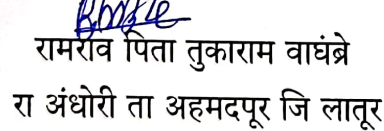 रामराव पिता तुकाराम वाघंब्रे
रा अंधोरी ता अहमदपूर जि लातूर